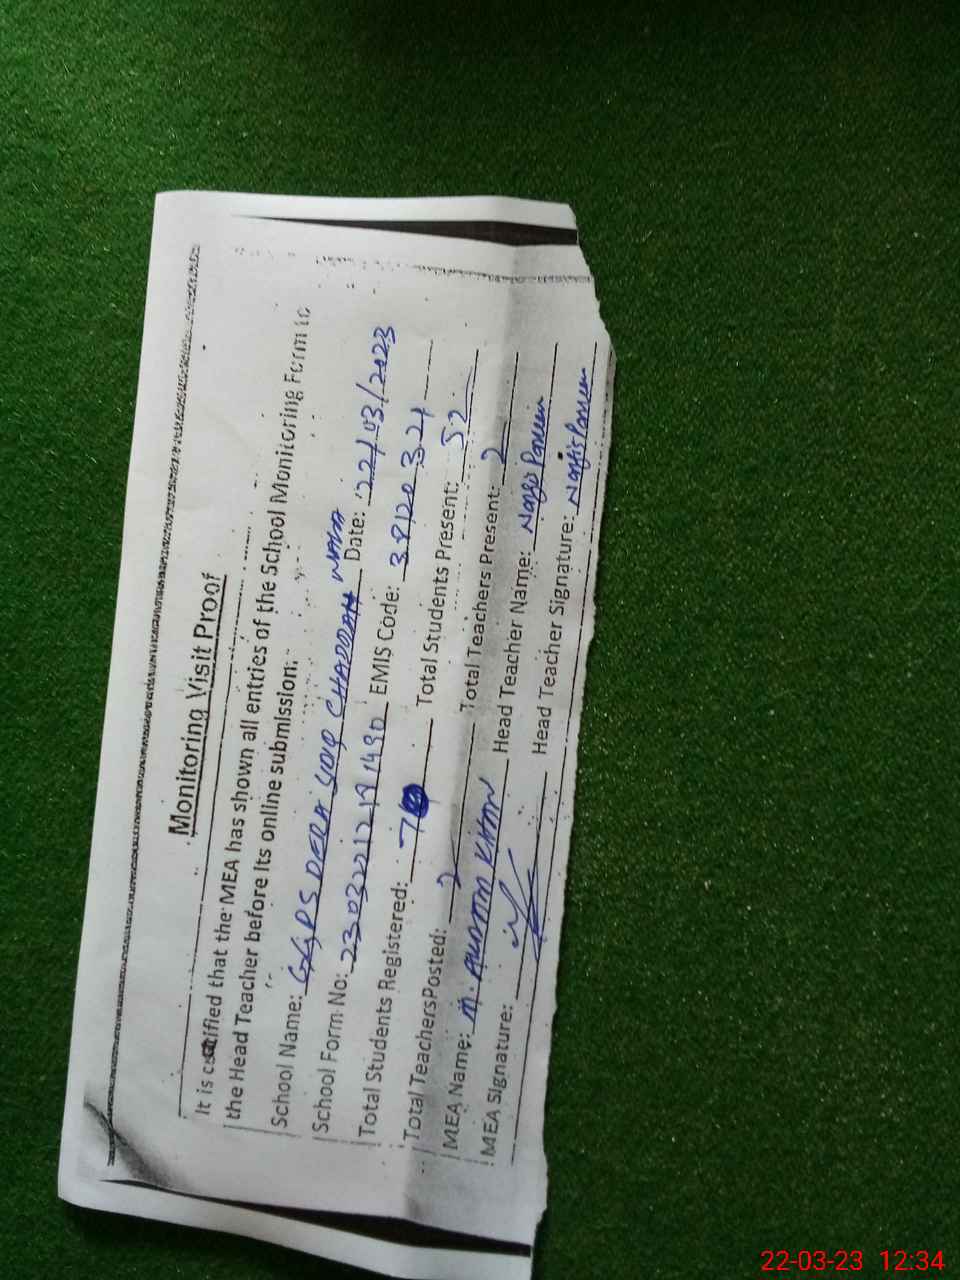 Monitoring Visit Proof
It is certified that the MEA has shown all entries of the School Monitoring Form to
the Head Teacher before its online submission.
School Name: GGPS DERA CHADDAH WALA Date: 22/03/2023
School Form No: EMIS Code: 38120321
Total Students Registered: 7 Total Students Present: 52
Total Teachers Posted: 2 Total Teachers Present: 2
MEA Name: M. KHAN Head Teacher Name: Nargis Parveen
MEA Signature: Head Teacher Signature: Nargis Parveen
22-03-23 12:34